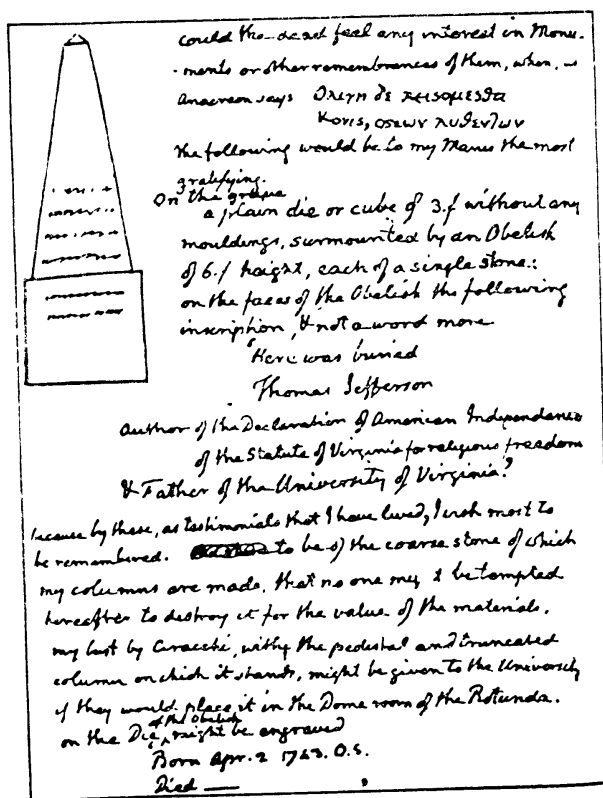 could the dead feel any interest in Monu-
-ments or other remembrances of them, when, as
Anacreon says Ολιγη δε κεισομεσθα
Κονις, οστεων λυθεντων
the following would be to my Manes the most
gratifying.
On the grave
a plain die or cube of 3.f without any
mouldings, surmounted by an Obelisk
of 6.f height, each of a single stone:
on the faces of the Obelisk the following
inscription, & not a word more
'Here was buried
Thomas Jefferson
Author of the Declaration of American Independance
of the Statute of Virginia for religious freedom
& Father of the University of Virginia.'
because by these, as testimonials that I have lived, I wish most to
be remembered. to be of the coarse stone of which
my columns are made, that no one might be tempted
hereafter to destroy it for the value of the materials.
my bust by Ciracchi, with the pedestal and truncated
column on which it stands, might be given to the University
if they would place it in the Dome room of the Rotunda.
on the Die of the Obelisk might be engraved
Born Apr. 2 1743. O.S.
Died —